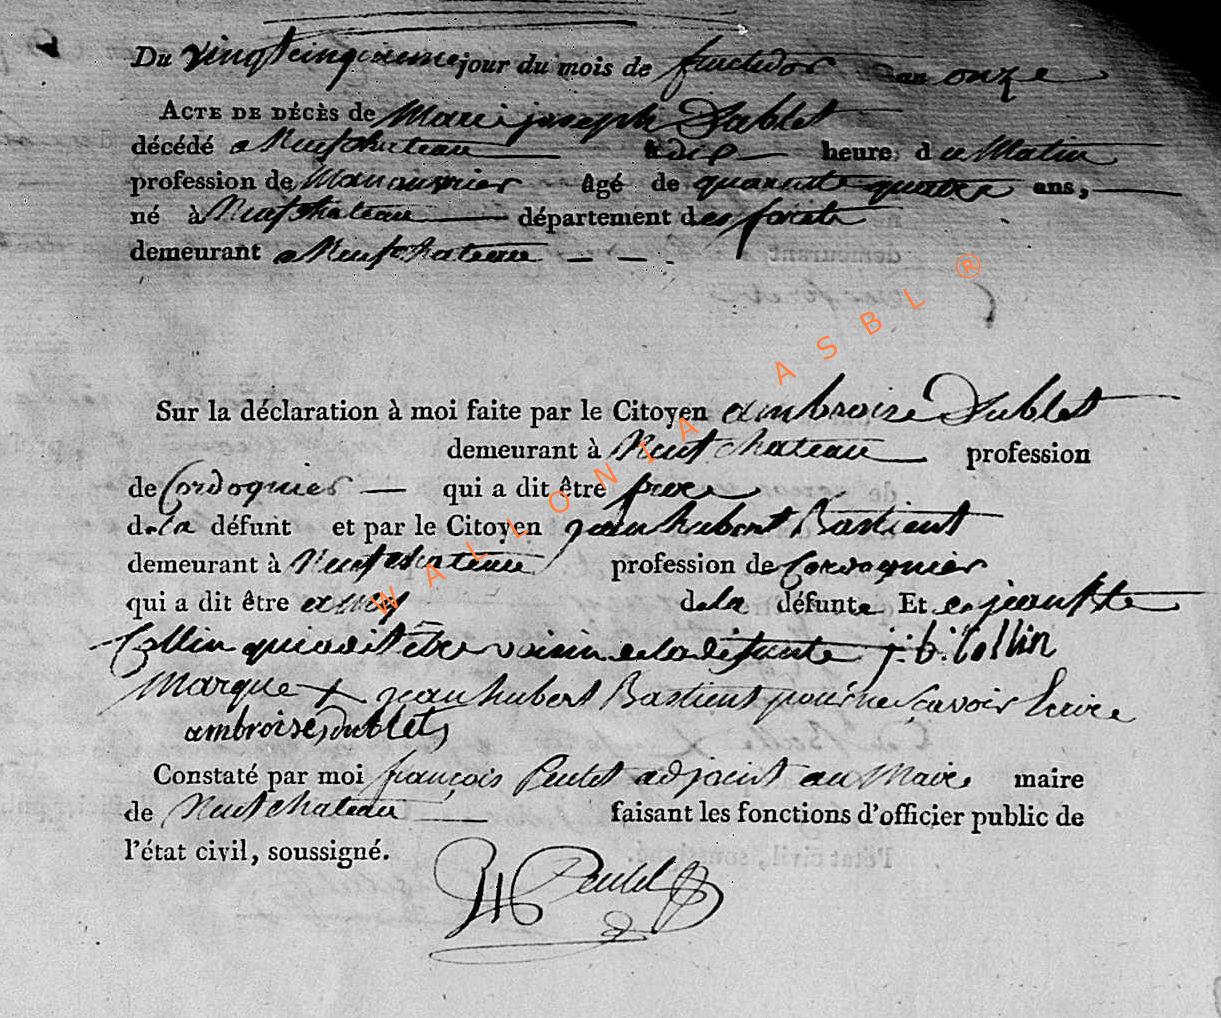 Du vingtcinquieme jour du mois de fructidor an onze
ACTE DE DÉCÈS de Marie joseph Dublet
décédé a Neufchateau à dix heure du Matin
profession de Manouvrier âgé de quarante quatre ans,
né à Neufchateau département des forets
demeurant a Neufchateau
Sur la déclaration à moi faite par le Citoyen ambroise Dublet
demeurant à Neufchateau profession
de Cordognier qui a dit être
de la défunt et par le Citoyen jean hubert Bastient
demeurant à Neufchateau profession de Cordognier
qui a dit être amy de la défunte Et
Collin qui a dit être voisin de la defunte j: b: Collin
Marque + jean hubert Bastient pour ne savoir Ecrire
ambroise dublet
Constaté par moi françois Peulet adjoint au Maire maire
de Neufchateau faisant les fonctions d'officier public de
l'état civil, soussigné.
Peulet
WALLONIA ASBL ®